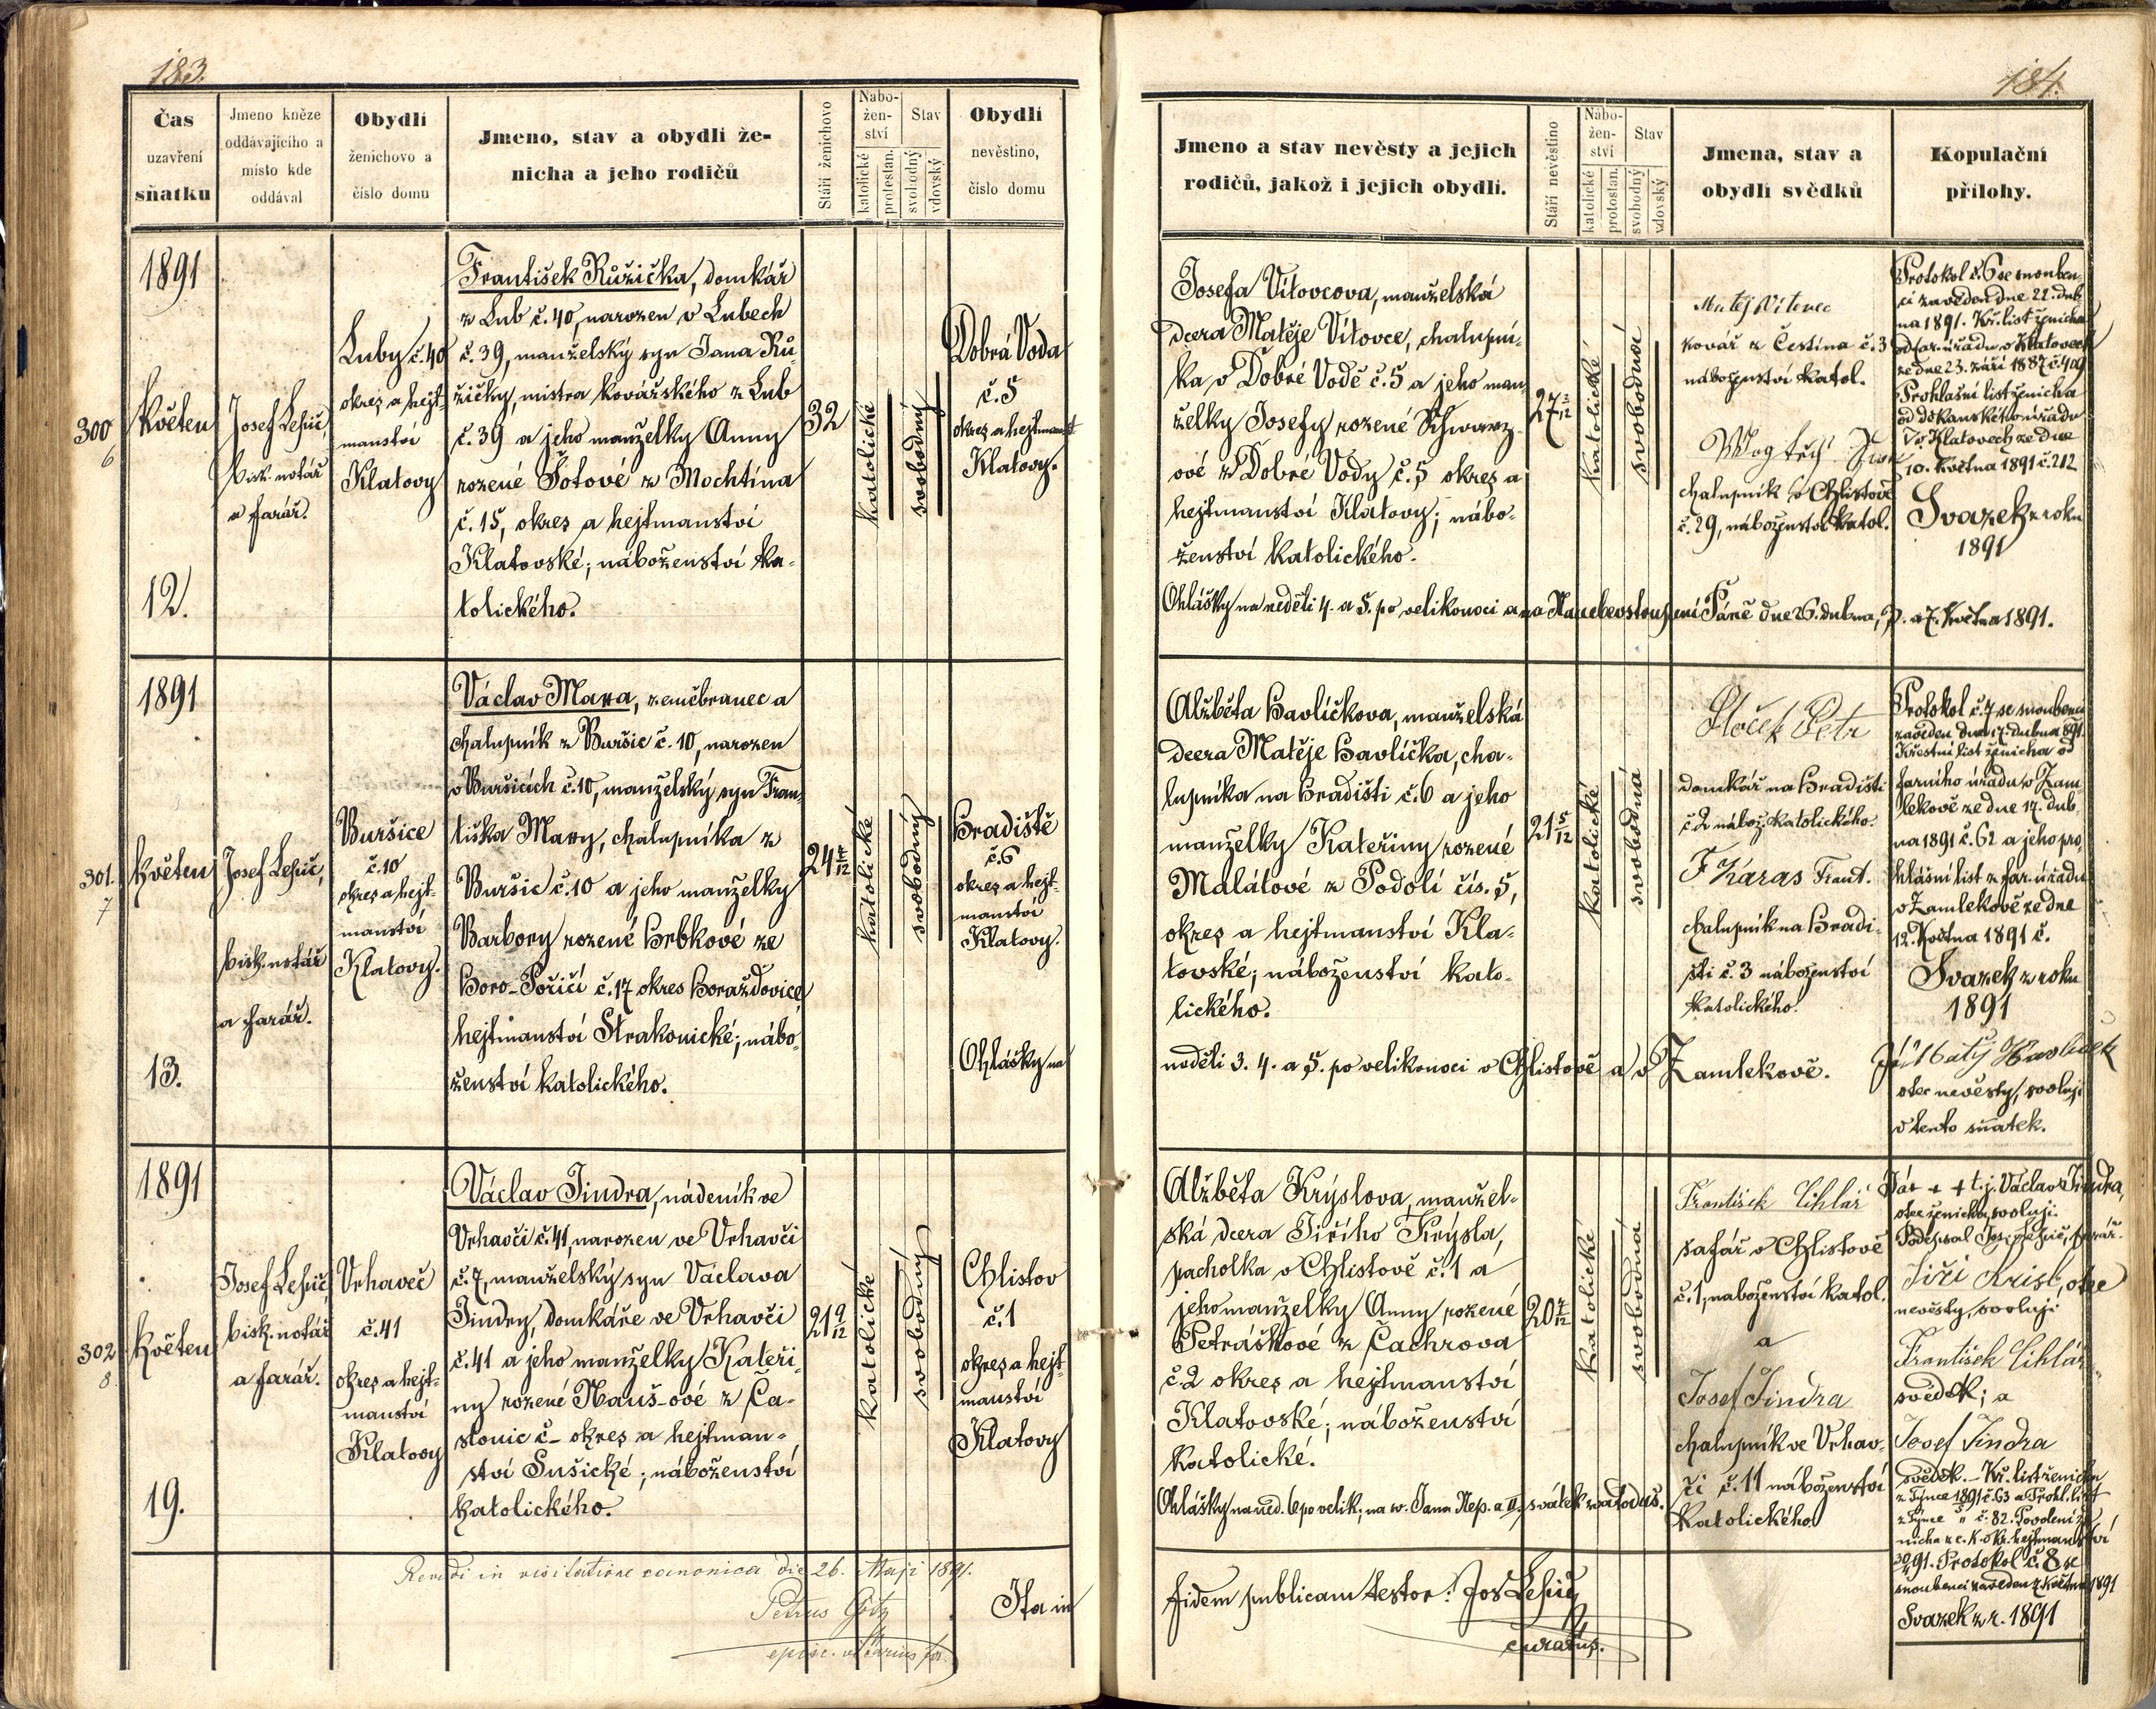 183.
Čas
uzavření
sňatku
Jmeno kněze
oddávajícího a
místo kde
oddával
Obydlí
ženichovo a
číslo domu
Jmeno, stav a obydlí že-
nicha a jeho rodičů
Stáří ženichovo
Nábo-
žen-
ství
katolické
protestan.
Stav
svobodný
vdovský
Obydlí
nevěstino,
číslo domu
300
6
1891
květen
12.
Josef Lepič,
bisk. notář
a farář.
Luby č. 40
okres a hejt-
manství
Klatovy
František Růžička, domkář
z Lub č. 40, narozen v Lubech
č. 39, manželský syn Jana Rů-
žičky, mistra kovářského z Lub
č. 39 a jeho manželky Anny
rozené Šotové z Mochtína
č. 15, okres a hejtmanství
Klatovské; náboženství ka-
tolického.
32
katolické
svobodný
Dobrá Voda
č. 5
okres a hejtmanst
Klatovy.
301.
7
1891
květen
13.
Josef Lepič,
bisk. notář
a farář.
Buršice
č. 10
okres a hejt-
manství
Klatovy.
Václav Mara, zeměbranec a
chalupník z Buršic č. 10, narozen
v Buršicích č. 10, manželský syn Fran-
tiška Mary, chalupníka z
Buršic č. 10 a jeho manželky
Barbory rozené Hrbkové ze
Horo-Poříčí č. 17 okres Horažďovice
hejtmanství Strakonické; nábo-
ženství katolického.
24
katolické
svobodný
Hradiště
č. 6
okres a hejt-
manství
Klatovy.
Ohlášky na
302
8.
1891
květen
19.
Josef Lepič,
bisk. notář
a farář.
Vrhaveč
č. 41
okres a hejt-
manství
Klatovy
Václav Jindra, nádeník ve
Vrhavči č. 41, narozen ve Vrhavči
č. 7, manželský syn Václava
Jindry, domkáře ve Vrhavči
č. 41 a jeho manželky Kateři-
ny rozené Nauš-ové z Ča-
slonic č – okres a hejtman-
ství Sušické; náboženství
katolického.
21 9/12
katolické
svobodný
Chlistov
č. 1
okres a hejt-
manství
Klatovy
Revidi in visitatione canonica die 26. Maji 1891.
Petrus Götz
episc. vicarius for.
Ita in
184.
Jmeno a stav nevěsty a jejich
rodičů, jakož i jejich obydlí.
Stáří nevěstino
Nábo-
žen-
ství
katolické
protestan.
Stav
svobodný
vdovský
Jmena, stav a
obydlí svědků
Kopulační
přílohy.
Josefa Vítovcova, manželská
dcera Matěje Vítovce, chalupní-
ka v Dobré Vodě č. 5 a jeho man-
želky Josefy rozené Schwarz-
ové z Dobré Vody č. 5 okres a
hejtmanství Klatovy; nábo-
ženství katolického.
27 2/12
katolické
svobodná
Matěj Vítovec
kovář z Čestína č. 3
náboženství katol.
Wogtěch
chalupník v Chlistově
č. 29, náboženství katol.
Protokol č. 6 se snouben-
ci zaveden dne 22. dub-
na 1891. Kř. list ženicha
od far. úřadu v Klatovech
ze dne 23. září 1887 č. 409
Prohlašní list ženicha
od děkanského úřadu
v Klatovech ze dne
10. května 1891 č. 212
Svazek z roku
1891
Ohlášky na neděli 4. a 5. po velikonoci a na Nanebevstoupení Páně dne 26. dubna, 3. a 7. května 1891.
Alžběta Havlíčkova, manželská
dcera Matěje Havlíčka, cha-
lupníka na Hradišti č. 6 a jeho
manželky Kateřiny rozené
Malátové z Podolí čís. 5,
okres a hejtmanství Kla-
tovské; náboženství kato-
lického.
21 5/12
katolické
svobodná
Petr
domkář na Hradišti
č. 2 nábož. katolického.
F Karas Frant.
chalupník na Hradi-
šti č. 3 náboženství
katolického.
Protokol č. 7 se snoubenci
zaveden dne 17. dubna 891.
Křestní list ženicha od
farního úřadu v Zam-
lekově ze dne 17. dub-
na 1891 č. 62 a jeho pro-
hlášní list z far. úřadu
v Zamlekově ze dne
12. května 1891 č.
Svazek z roku
1891
neděli 3. 4. a 5. po velikonoci v Chlistově a v Zamlekově.
Já Matěj Havlíček
otec nevěsty, svoluji
v tento sňatek.
Alžběta Krýslova, manžel-
ská dcera Jiřího Krýsla,
pacholka v Chlistově č. 1 a
jeho manželky Anny rozené
Petráškové z Čachrova
č. 2 okres a hejtmanství
Klatovské; náboženství
katolické.
20 7/12
katolické
svobodná
František Cihlář
šafář v Chlistově
č. 1, náboženství katol.
a
Josef Jindra
chalupník ve Vrhav-
či č. 11 náboženství
katolického
Já + + + t. j. Václav Jindra,
otec ženicha, svoluji.
Podepsal Josef Lepič, farář.
Jiří Krisl, otec
nevěsty, svoluji
František Cihlář
svědek; a
Josef Jindra
svědek. – Kř. list ženicha
z Týnce 1891 č. 63 a Prohl. list
z Týnce " č. 82. Povolení že-
nicha z c. k. okr. hejtmanství
91. Protokol č. 8 se
snoubenci zaveden 2. května 1891
Svazek z r. 1891
Ohlášky na ned. 6 po velik; na sv. Jana Nep. a II. svátek svatoduš.
fidem publicam testor: Jos Lepič
curatus.